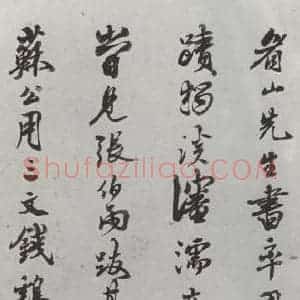 眉山先生書率用
蹟獨淡濡
嘗見張伯雨跋其
蘇公用三文錢雞
Shufaziliao.COM